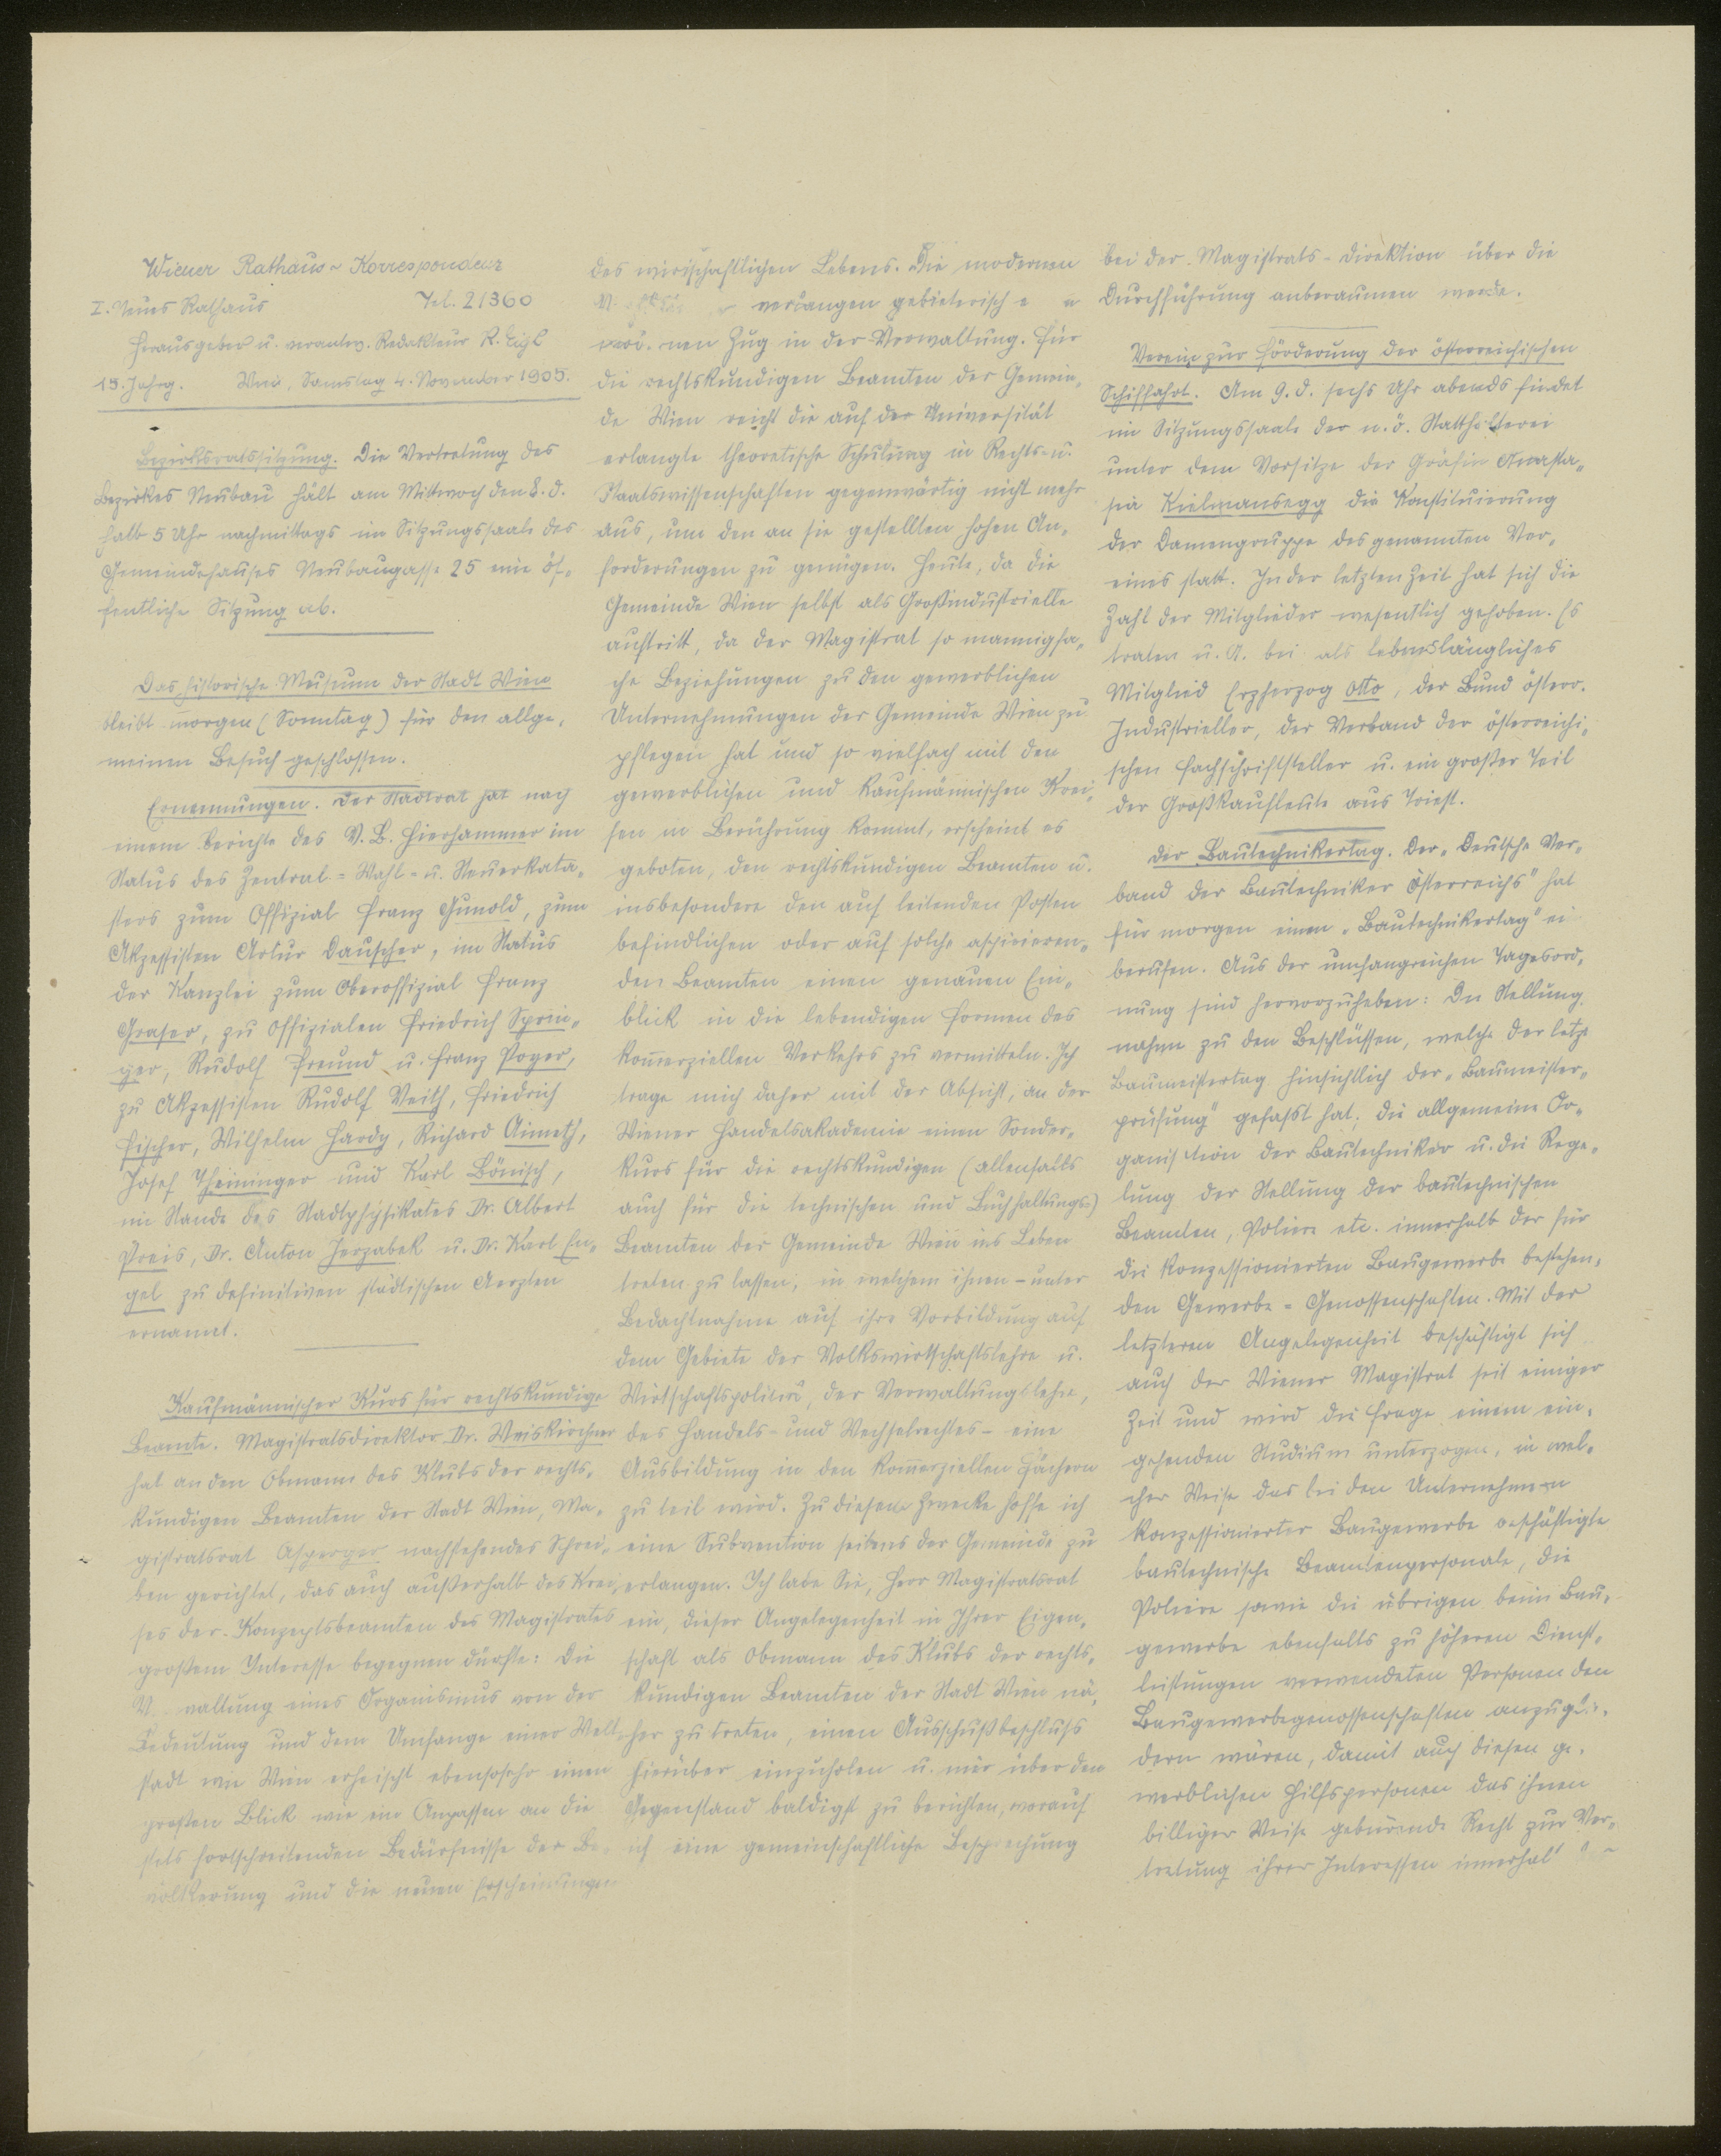 Wiener Rathaus-Korrespondenz
I. Neues Rathaus Tel. 21360
Herausgeber u. verantw. Redakteur R. Eigl
15. Jahrg. Wien, Samstag 4. November 1905.
Bezirksratssitzung. Die Vertretung des
Bezirkes Neubau hält am Mittwoch den 8. d.
halb 5 Uhr nachmittags im Sitzungssaale des
Gemeindehauses Neubaugasse 25 eine öf-
fentliche Sitzung ab.
Das historische Museum der Stadt Wien
bleibt morgen (Sonntag) für den allge-
meinen Besuch geschlossen.
Ernennungen. Der Stadtrat hat nach
einem Berichte des V.B. Hierhammer im
Status des Zentral-Wahl- u. Steuerkata-
sters zum Offizial Franz Gunold, zum
Akzessisten Artur Dauscher, im Status
der Kanzlei zum Oberoffizial Franz
Graser, zu Offizialen Friedrich Sprin-
ger, Rudolf Freund u. Franz Poyer,
zu Akzessisten Rudolf Veith, Friedrich
Fischer, Wilhelm Hardy, Richard Aimeth,
Josef Theininger und Karl Bönisch,
im Stande des Stadtphysikates Dr. Albert
Preis, Dr. Anton Jerzabek u. Dr. Karl En-
gel zu definitiven städtischen Aerzten
ernannt.
Kaufmännischer Kurs für rechtskundige
Beamte. Magistratsdirektor Dr. Weiskirchner
hat an den Obmann des Klubs der rechts-
kundigen Beamten der Stadt Wien, Ma-
gistratsrat Asperger nachstehendes Schrei-
ben gerichtet, das auch außerhalb des Krei-
ses der Konzeptsbeamten des Magistrates
großem Interesse begegnen dürfte: Die
V waltung eines Organismus von der
Bedeutung und dem Umfange einer Welt-
stadt wie Wien erheischt ebensosehr einen
großen Blick wie ein Anpassen an die
stets fortschreitenden Bedürfnisse der Be-
völkerung und die neuen Erscheinungen
des wirtschaftlichen Lebens. Die modernen
verlangen gebieterisch
nen Zug in der Verwaltung. Für
die rechtskundigen Beamten der Gemein-
de Wien reicht die auf der Universität
erlangte theoretische Schulung in Rechts- u.
Staatswissenschaften gegenwärtig nicht mehr
aus, um den an sie gestellten hohen An-
forderungen zu genügen. Heute, da die
Gemeinde Wien selbst als Großindustrielle
auftritt, da der Magistrat so mannigfa-
che Beziehungen zu den gewerblichen
Unternehmungen der Gemeinde Wien zu
pflegen hat und so vielfach mit den
gewerblichen und kaufmännischen Krei-
sen in Berührung kommt, erscheint es
geboten, den rechtskundigen Beamten u.
insbesondere den auf leitenden Posten
befindlichen oder auf solche aspirieren-
den Beamten einen genauen Ein-
blick in die lebendigen Formen des
kommerziellen Verkehrs zu vermitteln. Ich
trage mich daher mit der Absicht, an der
Wiener Handelsakademie einen Sonder-
kurs für die rechtskundigen (allenfalls
auch für die technischen und Buchhaltungs-)
Beamten der Gemeinde Wien ins Leben
treten zu lassen, in welchem ihnen - unter
Bedachtnahme auf ihre Vorbildung auf
dem Gebiete der Volkswirtschaftslehre u.
Wirtschaftspolitik, der Verwaltungslehre,
des Handels- und Wechselrechtes - eine
Ausbildung in den kommerziellen Fächern
zu teil wird. Zu diesem Zwecke hoffe ich
eine Subvention seitens der Gemeinde zu
erlangen. Ich lade Sie, Herr Magistratsrat
ein, dieser Angelegenheit in Ihrer Eigen-
schaft als Obmann des Klubs der rechts-
kundigen Beamten der Stadt Wien nä-
her zu treten, einen Ausschußbeschluss
hierüber einzuholen u. mir über den
Gegenstand baldigst zu berichten, worauf
ich eine gemeinschaftliche Besprechung
bei der Magistrats-Direktion über die
Durchführung anberaumen werde.
Verein zur Förderung der österreichischen
Schiffahrt. Am 9. d. sechs Uhr abends findet
im Sitzungssaale der n.ö. Statthalterei
unter dem Vorsitze der Gräfin Anasta-
sia Kielmansegg die Konstituierung
der Damengruppe des genannten Ver-
eines statt. In der letzten Zeit hat sich die
Zahl der Mitglieder wesentlich gehoben. Es
traten u. A. bei als lebenslängliches
Mitglied Erzherzog Otto, der Bund österr.
Industrieller, der Verband der österreichi-
schen Fachschriftsteller u. ein großer Teil
der Großkaufleute aus Triest.
Der Bautechnikertag. Der „Deutsche Ver-
band der Bautechniker Österreichs" hat
für morgen einen „Bautechnikertag" ei
berufen. Aus der umfangreichen Tagesord-
nung sind hervorzuheben: Die Stellung-
nahme zu den Beschlüssen, welche der letzte
Baumeistertag hinsichtlich der „Baumeister-
prüfung" gefasst hat; die allgemeine Or-
ganisation der Bautechniker u. die Rege-
lung der Stellung der bautechnischen
Beamten, Poliere etc. innerhalb der für
die konzessionierten Baugewerbe bestehen-
den Gewerbe-Genossenschaften. Mit der
letzteren Angelegenheit beschäftigt sich
auch der Wiener Magistrat seit einiger
Zeit und wird die Frage einem ein-
gehenden Studium unterzogen, in wel-
cher Weise das bei den Unternehmern
konzessionierter Baugewerbe beschäftigte
bautechnische Beamtenpersonale, die
Poliere sowie die übrigen beim Bau-
gewerbe ebenfalls zu höheren Dienst-
leistungen verwendeten Personen den
Baugewerbegenossenschaften anzuglie-
dern wären, damit auch diesen ge-
werblichen Hilfspersonen das ihnen
billiger Weise gebürende Recht zur Ver-
tretung ihrer Interessen innerhal